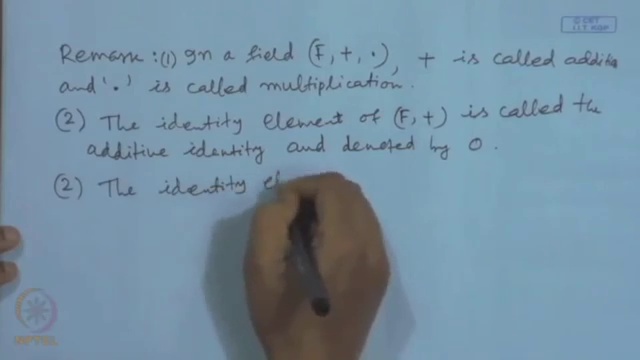 © CET
I.I.T. KGP
Remark : (1) In a field (F, +, ·), + is called additi
and '·' is called multiplication.
(2) The identity element of (F, +) is called the
additive identity and denoted by 0.
(2) The identity el
NPTEL